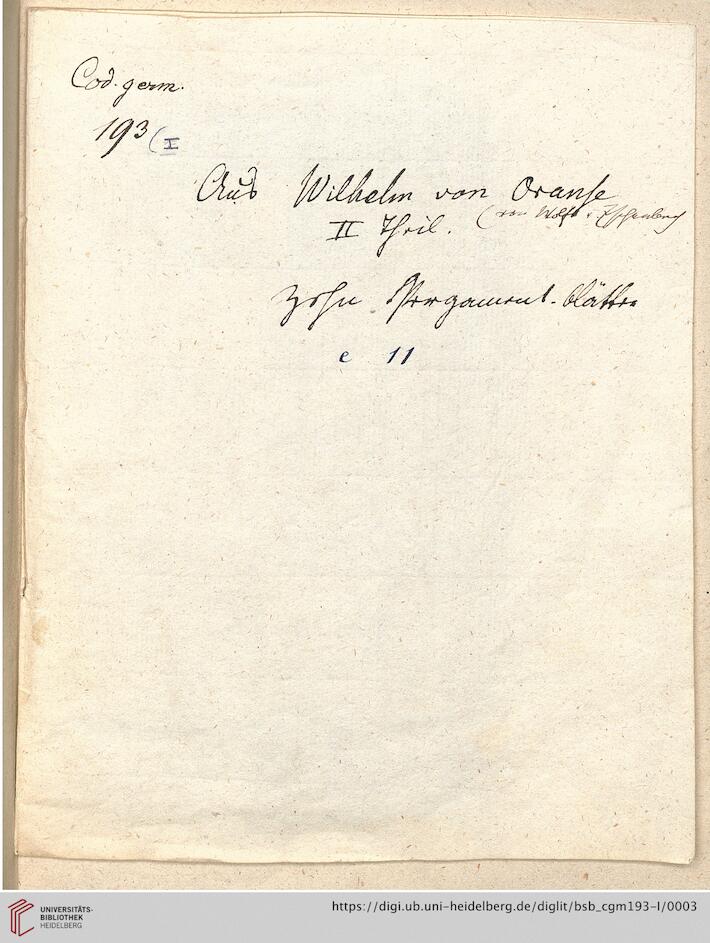 Cod. germ.
193 (I
Aus Wilhelm von Oranse
(von Wolfr. v. Eschenbach)
II Theil.
Zehn Pergament-blätter
e 11
UNIVERSITÄTS-
BIBLIOTHEK
HEIDELBERG
https://digi.ub.uni-heidelberg.de/diglit/bsb_cgm193-I/0003